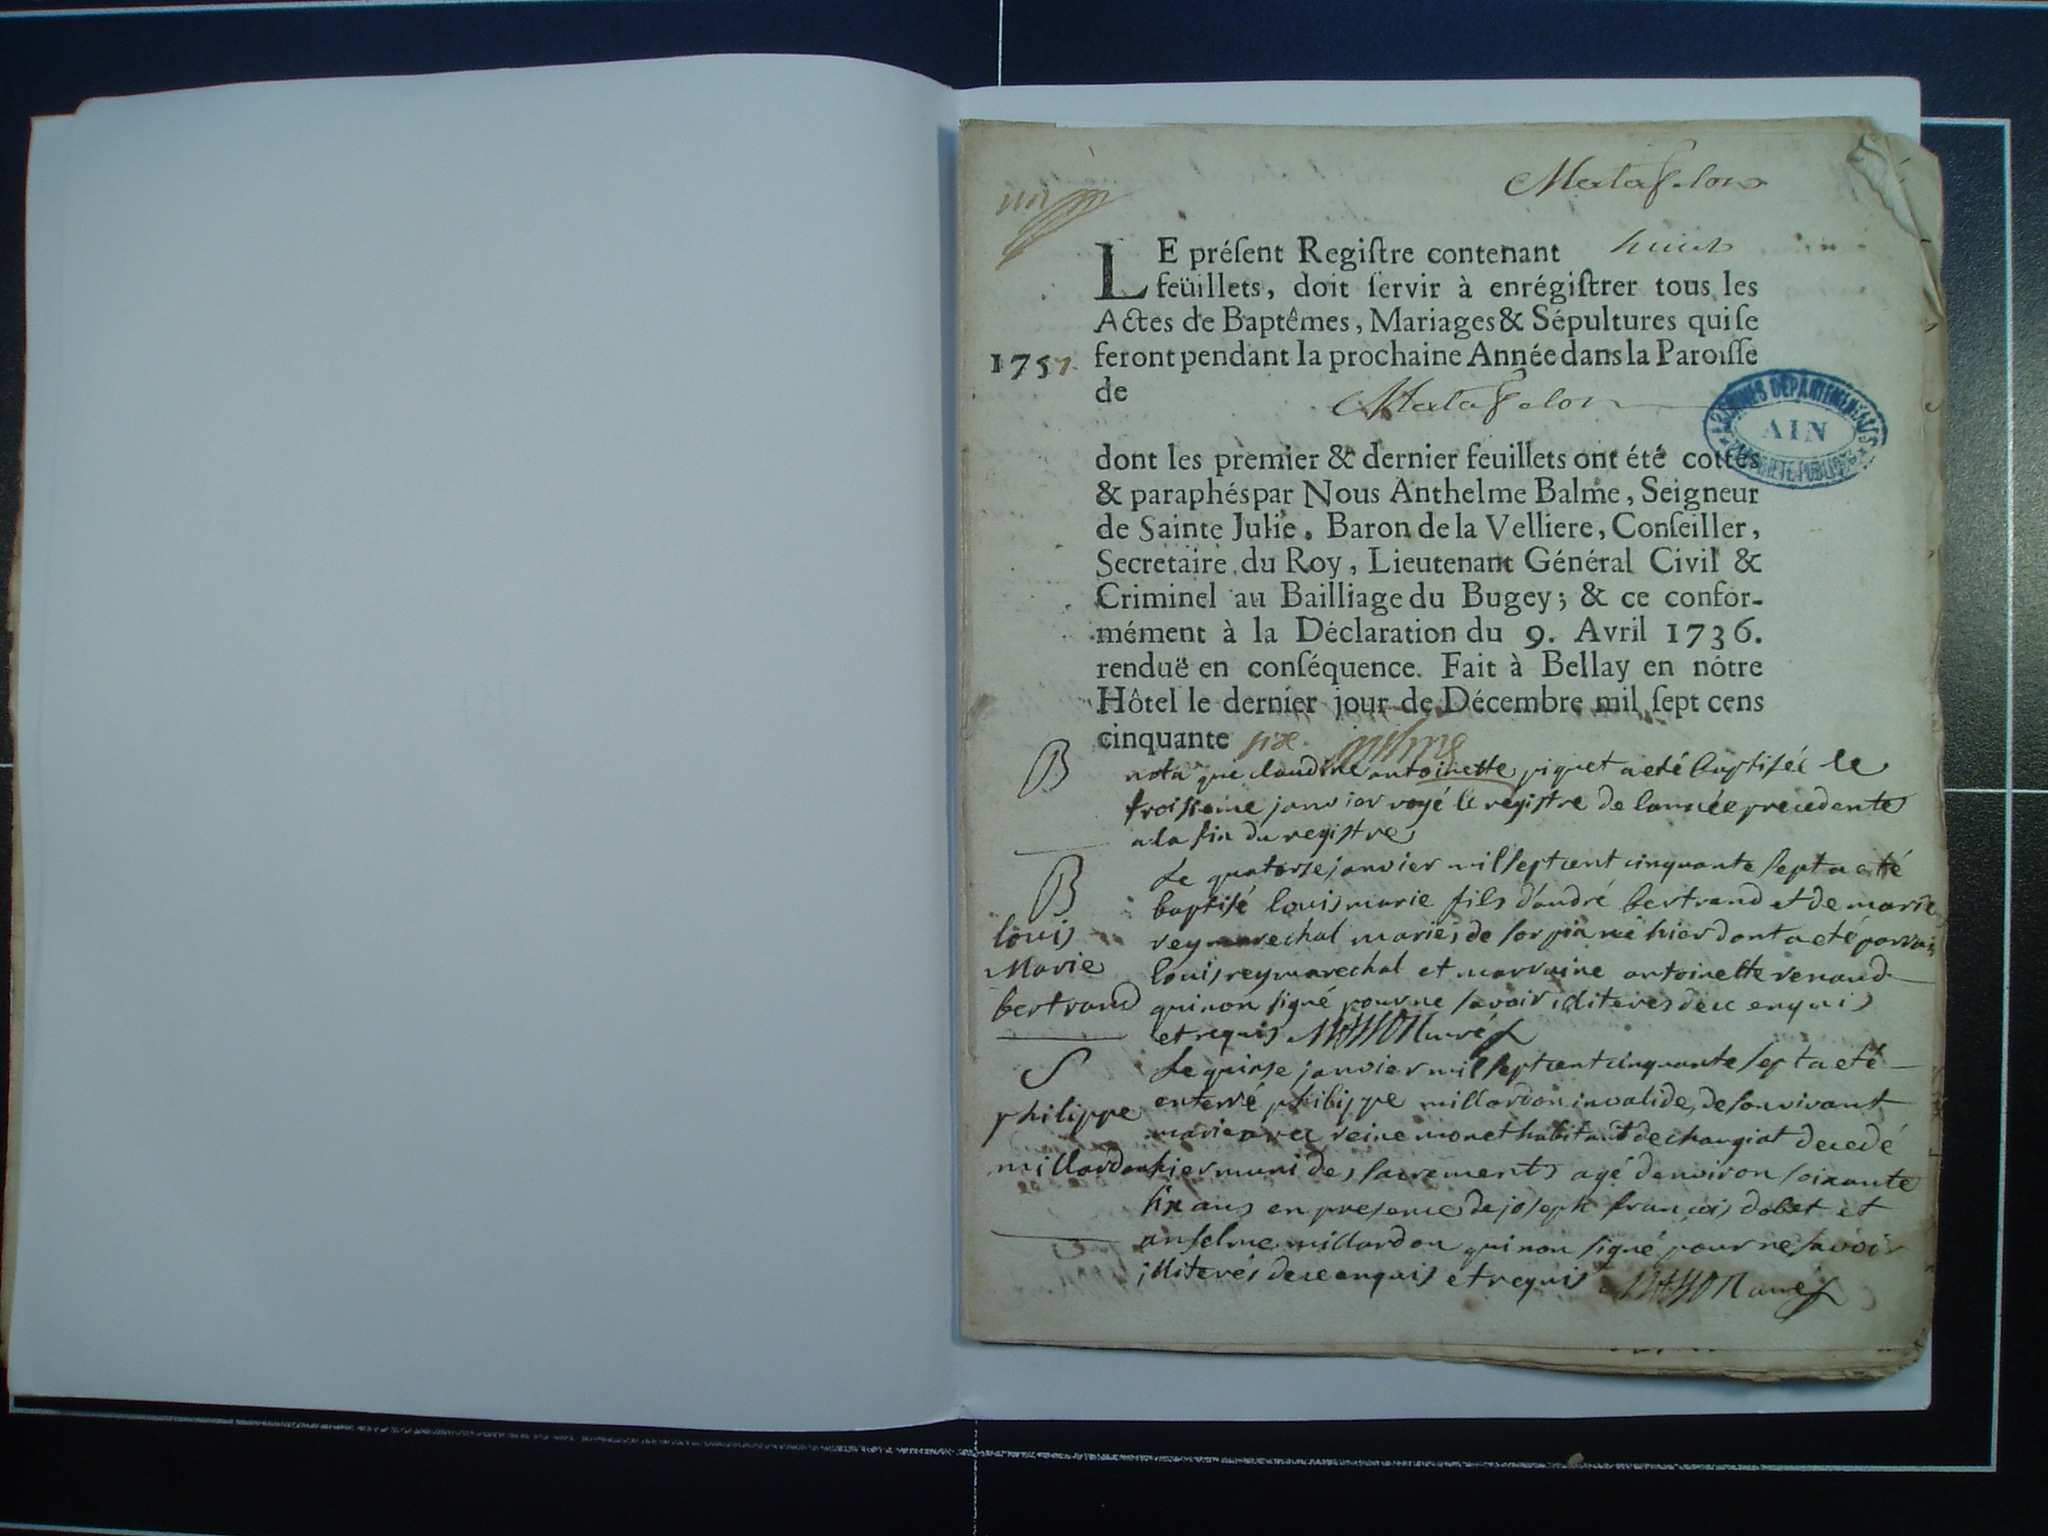 un
Matafelon
LE préſent Regiſtre contenant huict
feüillets, doit ſervir à enrégiſtrer tous les
Actes de Baptêmes, Mariages & Sépultures qui ſe
1757 feront pendant la prochaine Année dans la Paroiſſe
de Matafelon
ARCHIVES DÉPARTEMENTALES
AIN
PROPRIÉTÉ PUBLIQUE
dont les premier & dernier feuillets ont été cottés
& paraphés par Nous Anthelme Balme, Seigneur
de Sainte Julie, Baron de la Velliere, Conſeiller,
Secretaire du Roy, Lieutenant Général Civil &
Criminel au Bailliage du Bugey; & ce confor-
mément à la Déclaration du 9. Avril 1736.
renduë en conſéquence. Fait à Bellay en nôtre
Hôtel le dernier jour de Décembre mil ſept cens
cinquante six
B nota que claudine antoinette piquet a eté baptisée le
troisieme janvier voyé le registre de lannée precedente
a la fin du registre
B Le quatorse janvier mil sept cent cinquante sept a eté
baptisé louis marie fils d'andré bertrand et de marie
louis reymarechal mariés de sorpia né hier dont a eté parrain
Marie louis reymarechal et marraine antoinette renaud
bertrand qui non signé pour ne savoir illiteres de ce enquis
et requis curé
S Le quinse janvier mil sept cent cinquante sept a eté
philippe enterré philippe millardon invalide, de son vivant
marié avec reine monet habitant de changiat decedé
millardon hier muni des sacrements agé denviron soixante
six ans en presence de joseph françois dobet et
anselme millardon qui non signé pour ne savoir
illiterés de ce enquis et requis curé